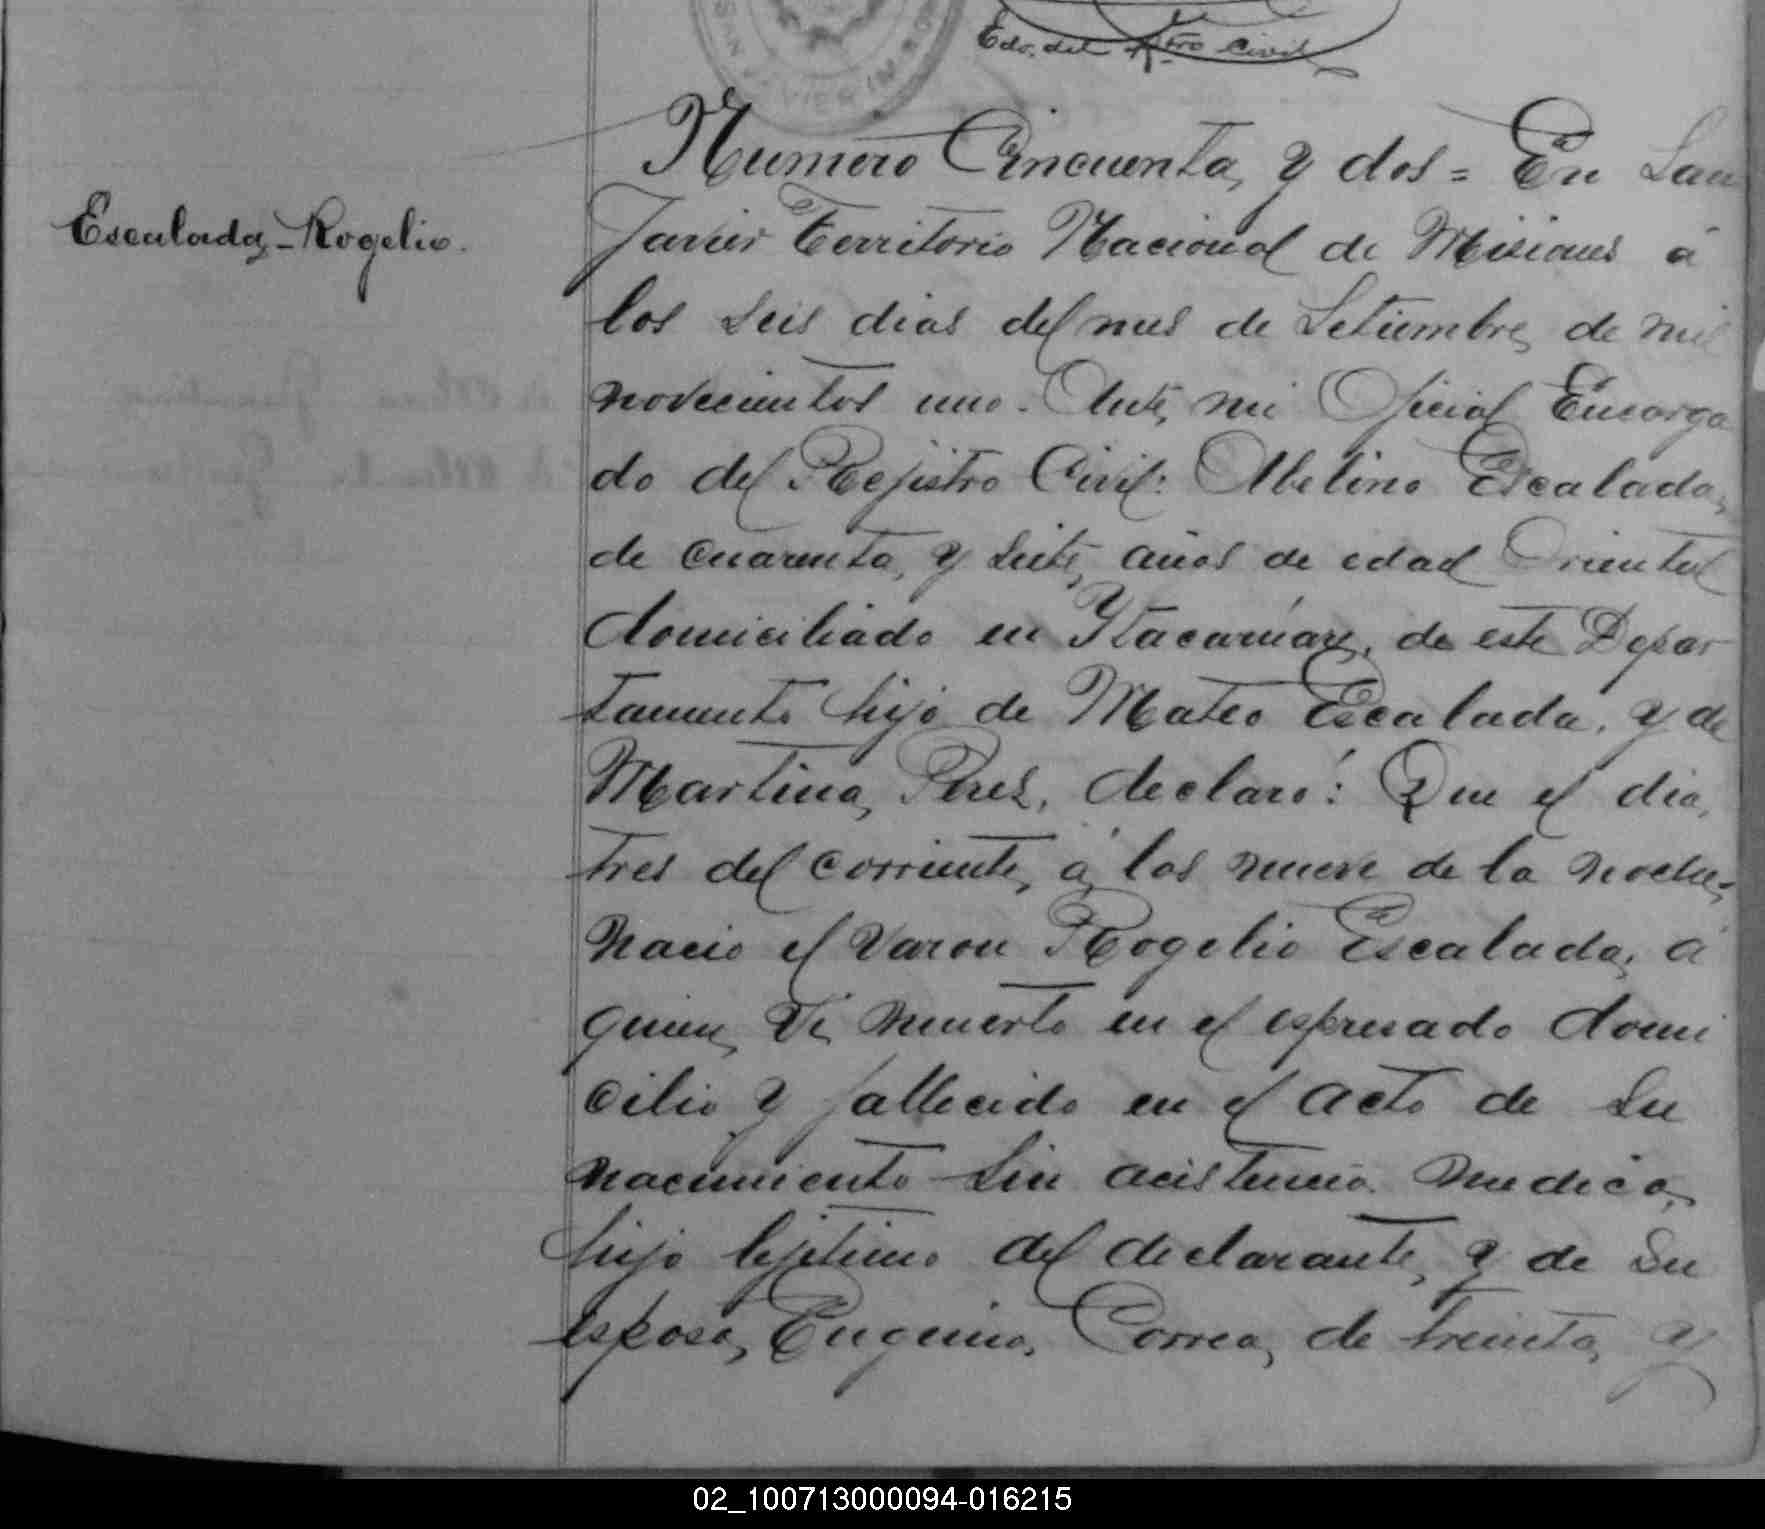 Edo. del Rtro Civil
Numero Cincuenta, y dos = En San
Escalada, Rogelio.
Javier Territorio Nacional de Misiones á
los seis dias del mes de Setiembre, de mil
novecientos uno. Ante, mi Oficial Encarga
do del Rejistro Civil: Abelino Escalada,
de cuarenta, y siete, años de edad Oriental
domiciliado en Ytacaruaré, de este Depar
tamento hijo de Mateo Escalada, y de
Martina, Perez, declaró: Que el dia,
tres del corriente, á las nueve de la noche,
nacio el varon Rogelio Escalada, á
quien, vi, muerto en el espresado domi
cilio y fallecido en el acto de su
nacimiento sin acistencia medica,
hijo lejitimo del declarante, y de su
esposa, Eugenia, Correa, de treinta, y
02_100713000094-016215